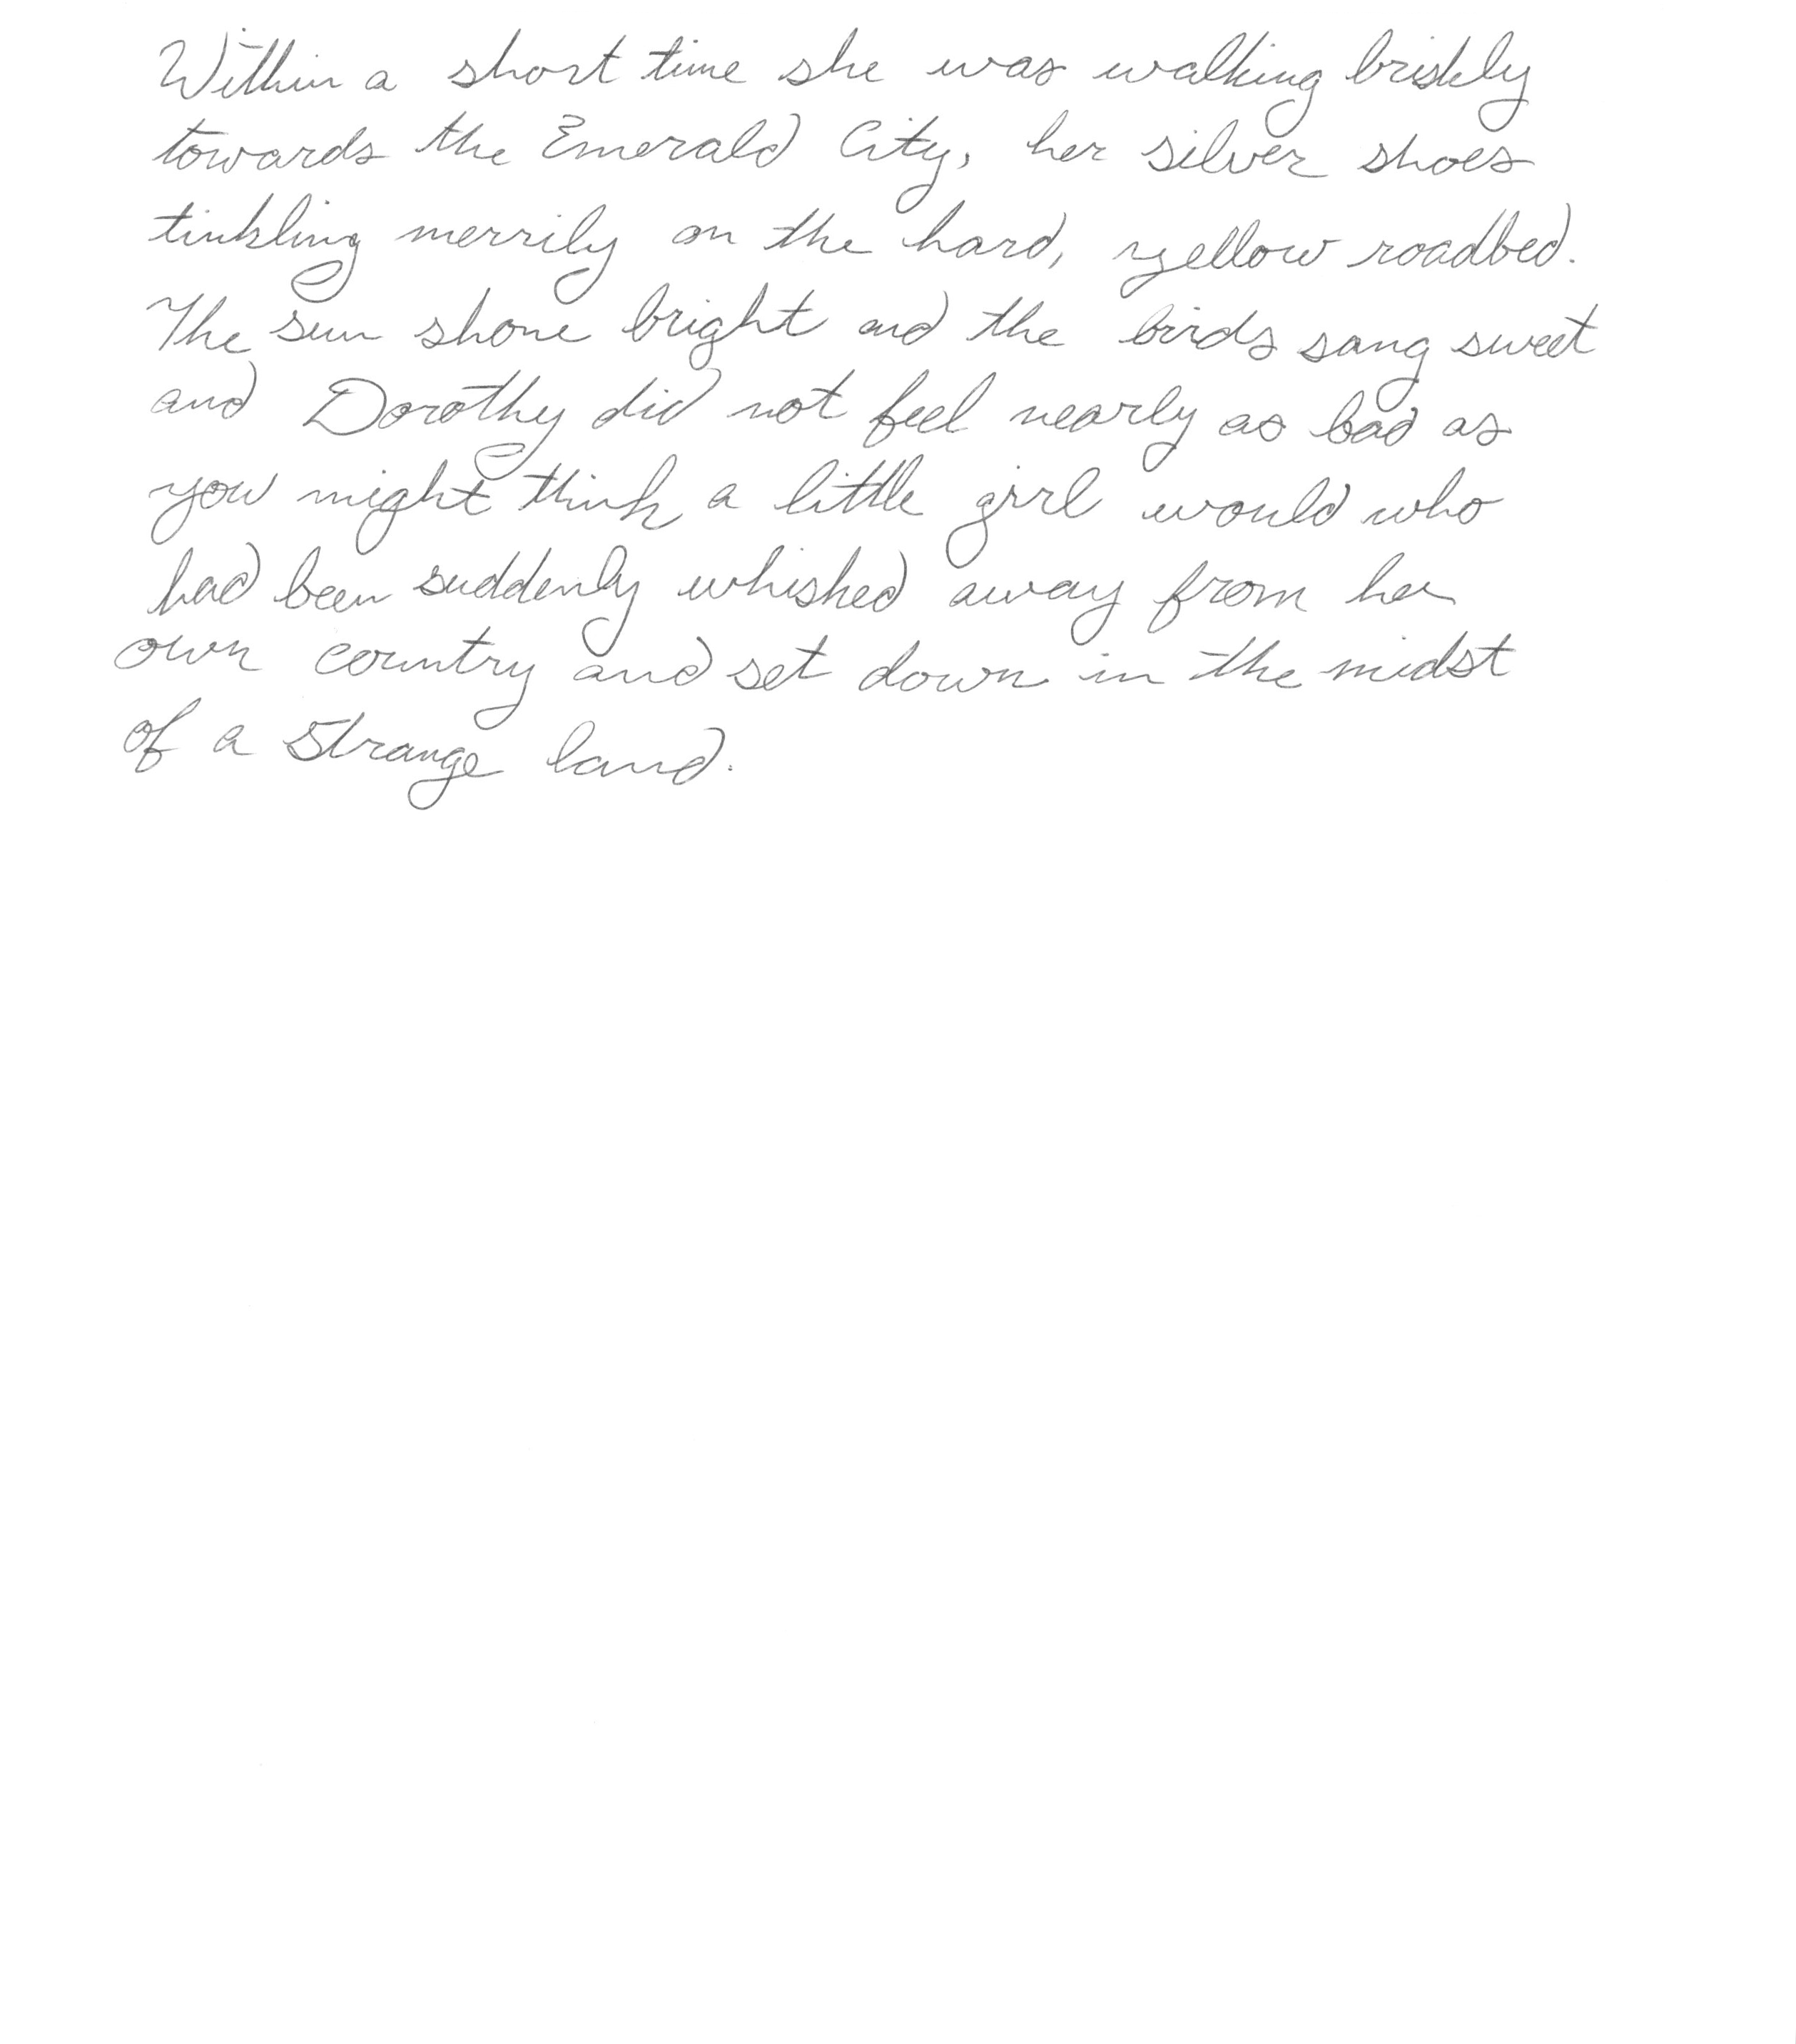 Within a short time she was walking briskly
towards the Emerald City, her silver shoes
tinkling merrily on the hard, yellow roadbed.
The sun shone bright and the birds sang sweet
and Dorothy did not feel nearly as bad as
you might think a little girl would who
had been suddenly whished away from her
own country and set down in the midst
of a strange land.